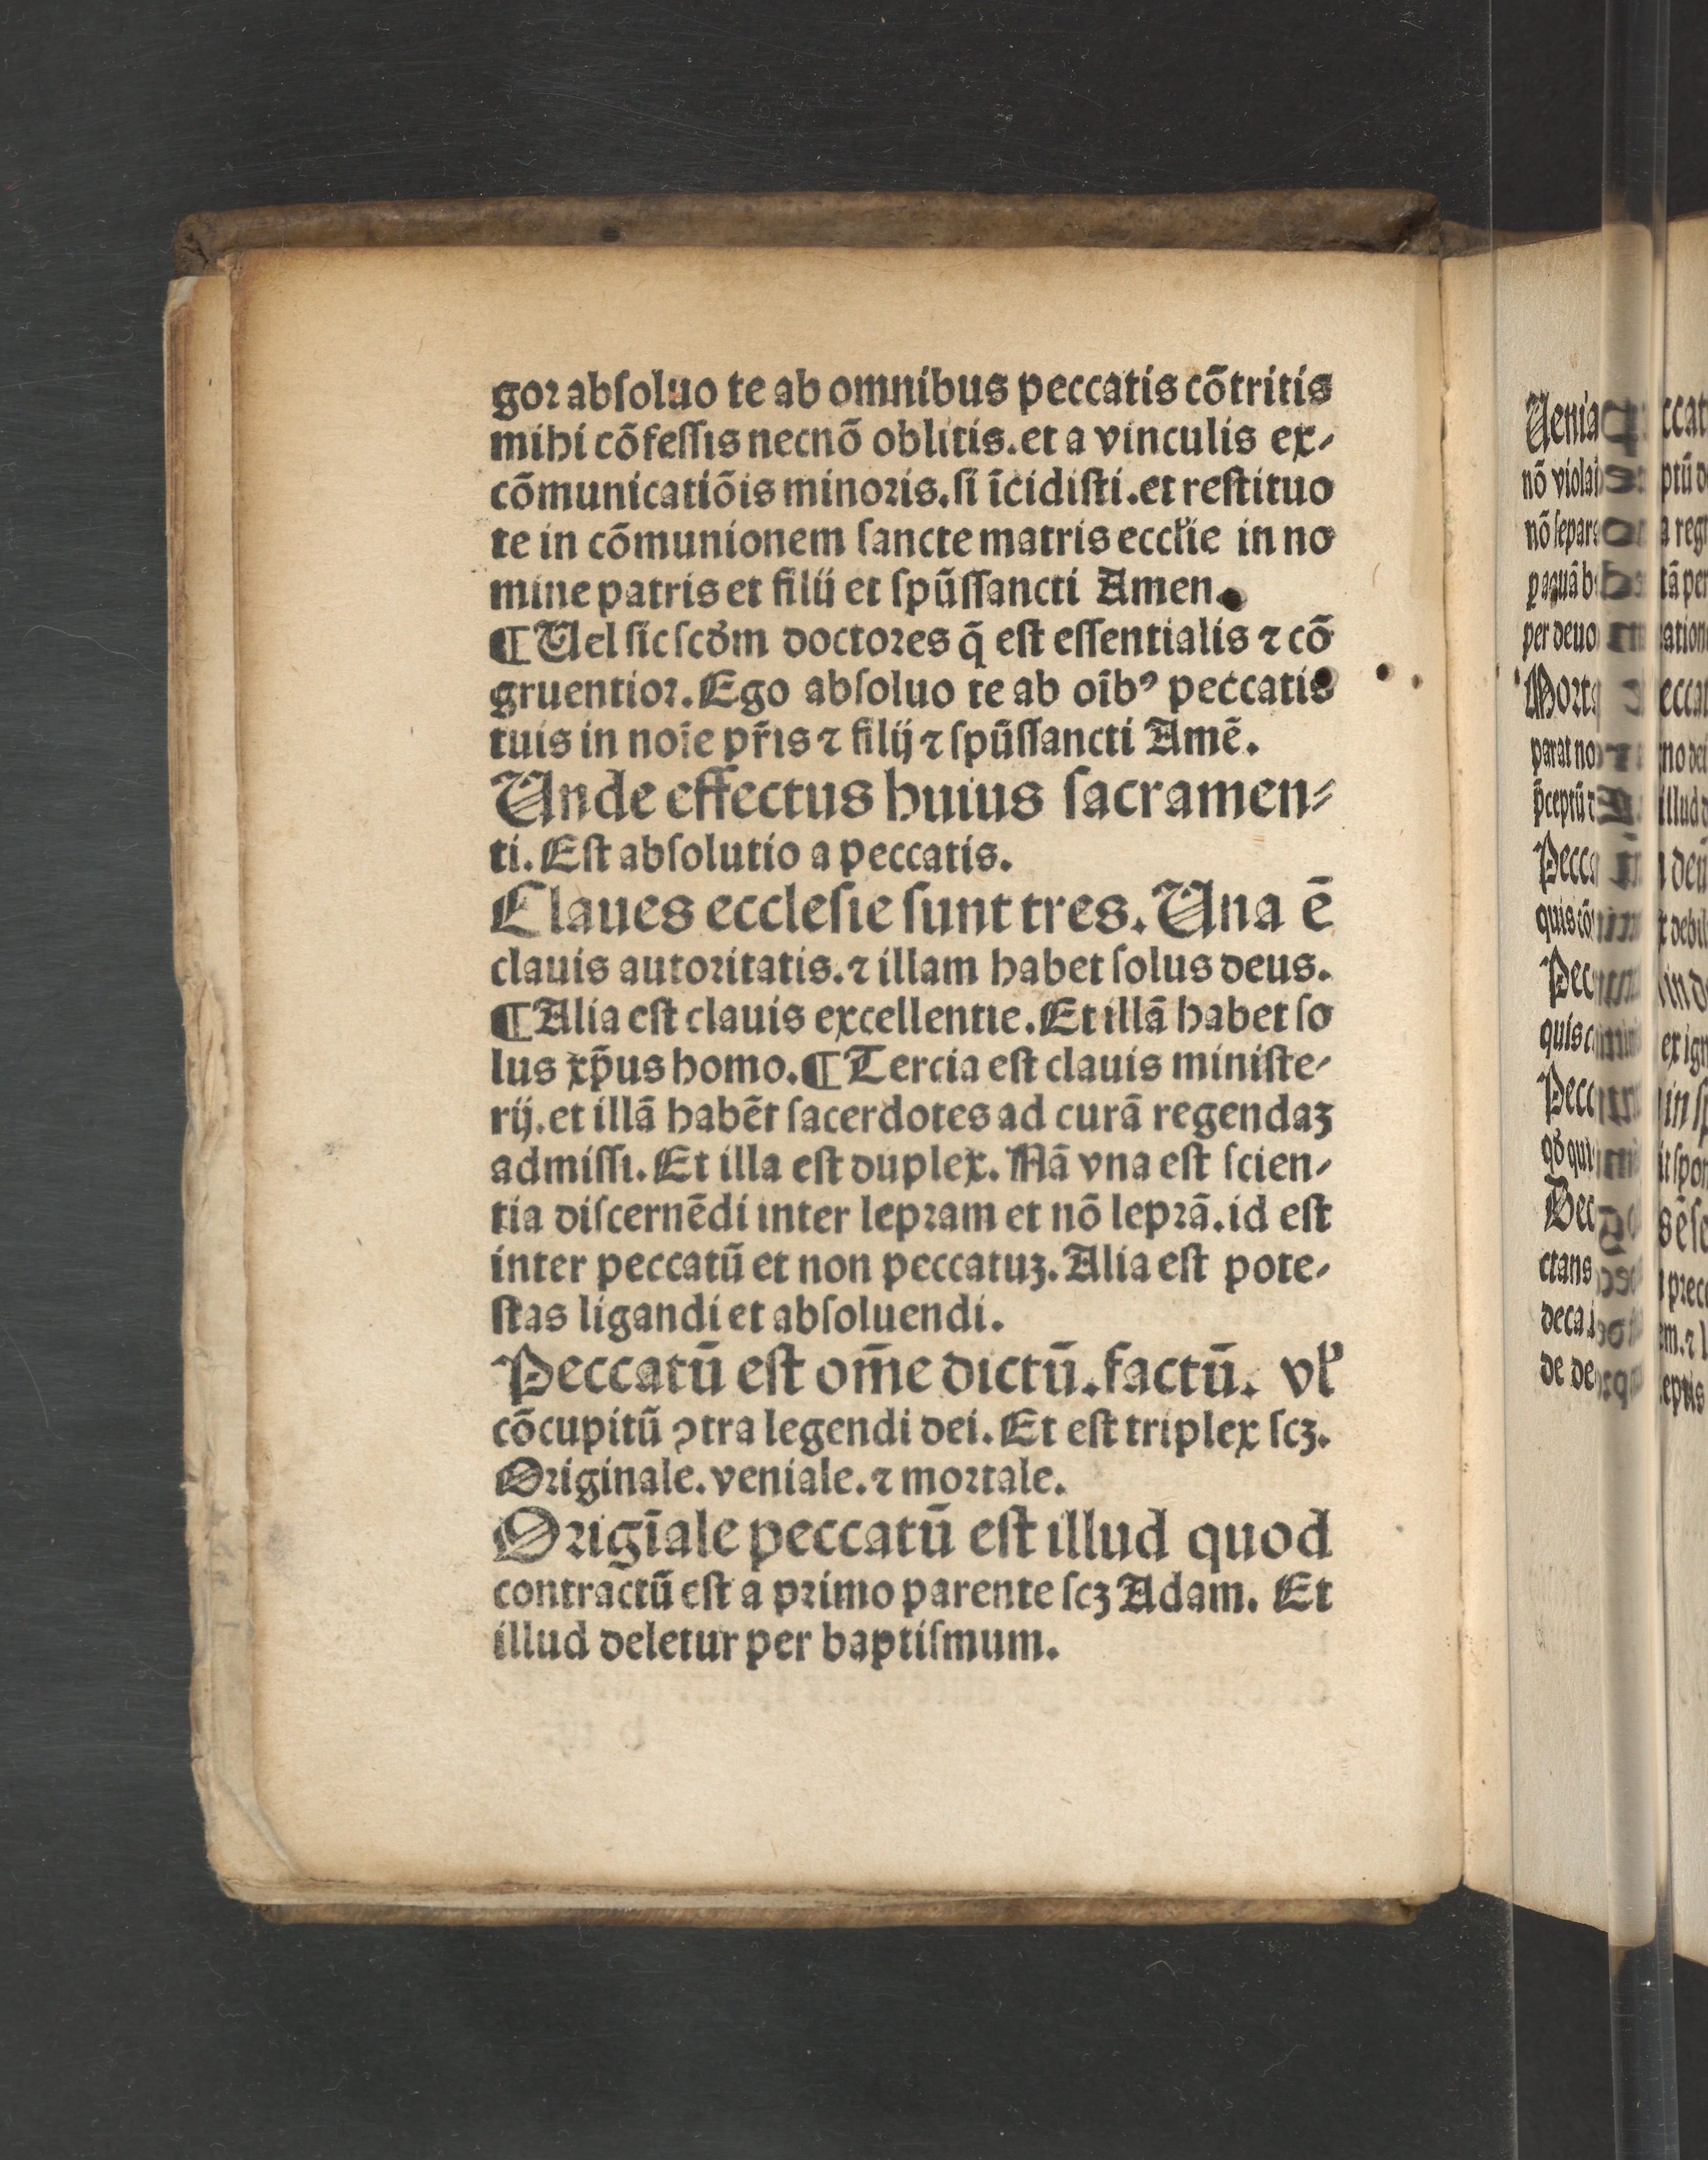 goꝛ abſoluo te ab omnibus peccatis cōtritis
mihi cōfeſſis necnō oblitis. et a vinculis ex⸗
cōmunicatiōis minoꝛis. ſi īcidiſti. et reſtituo
te in cōmunionem ſancte matris eccl̓ie in no
mine patris et filij et ſpūſſancti Amen.
¶ Uel ſic ſcḋm doctoꝛes q̄ eſt eſſentialis ⁊ cō
gruentioꝛ. Ego abſoluo te ab oībꝰ peccatis
tuis in noīe pr̄is ⁊ filij ⁊ ſpūſſancti Amē.
Unde effectus huius ſacramen⸗
ti. Eſt abſolutio a peccatis.
Claues eccleſie ſunt tres. Una ē
clauis autoꝛitatis. ⁊ illam habet ſolus deus.
¶ Alia eſt clauis excellentie. Et illā habet ſo
lus xp̄us homo. ¶ Tercia eſt clauis miniſte⸗
rij. et illā habēt ſacerdotes ad curā regendaꝫ
admiſſi. Et illa eſt duplex. Nā vna eſt ſcien⸗
tia diſcernēdi inter lepꝛam et nō lepꝛā. id eſt
inter peccatū et non peccatuꝫ. Alia eſt pote⸗
ſtas ligandi et abſoluendi.
Peccatū eſt om̄e dictū. factū. vl̓
cōcupitū ꝯtra legendi dei. Et eſt triplex ſcꝫ.
Oꝛiginale. veniale. ⁊ moꝛtale.
Oꝛigīale peccatū eſt illud quod
contractū eſt a pꝛimo parente ſcꝫ Adam. Et
illud deletur per baptiſmum.